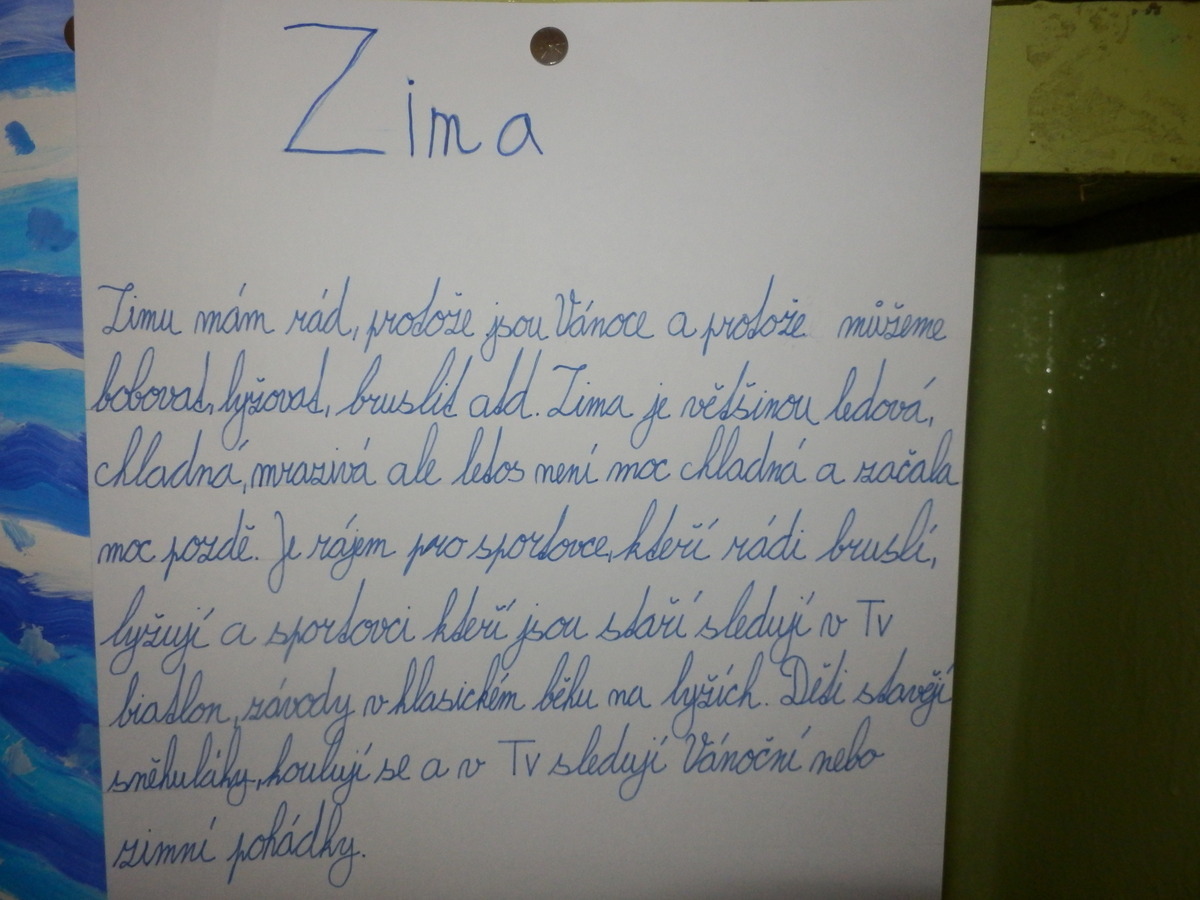 Zima
Zimu mám rád, protože jsou Vánoce a protože můžeme
bobovat, lyžovat, bruslit atd. Zima je většinou ledová,
chladná, mrazivá ale letos není moc chladná a začala
moc pozdě. Je rájem pro sportovce, kteří rádi bruslí,
lyžují a sportovci kteří jsou staří sledují v Tv
biatlon, závody v klasickém běhu na lyžích. Děti stavějí
sněhuláky, koulují se a v Tv sledují Vánoční nebo
zimní pohádky.